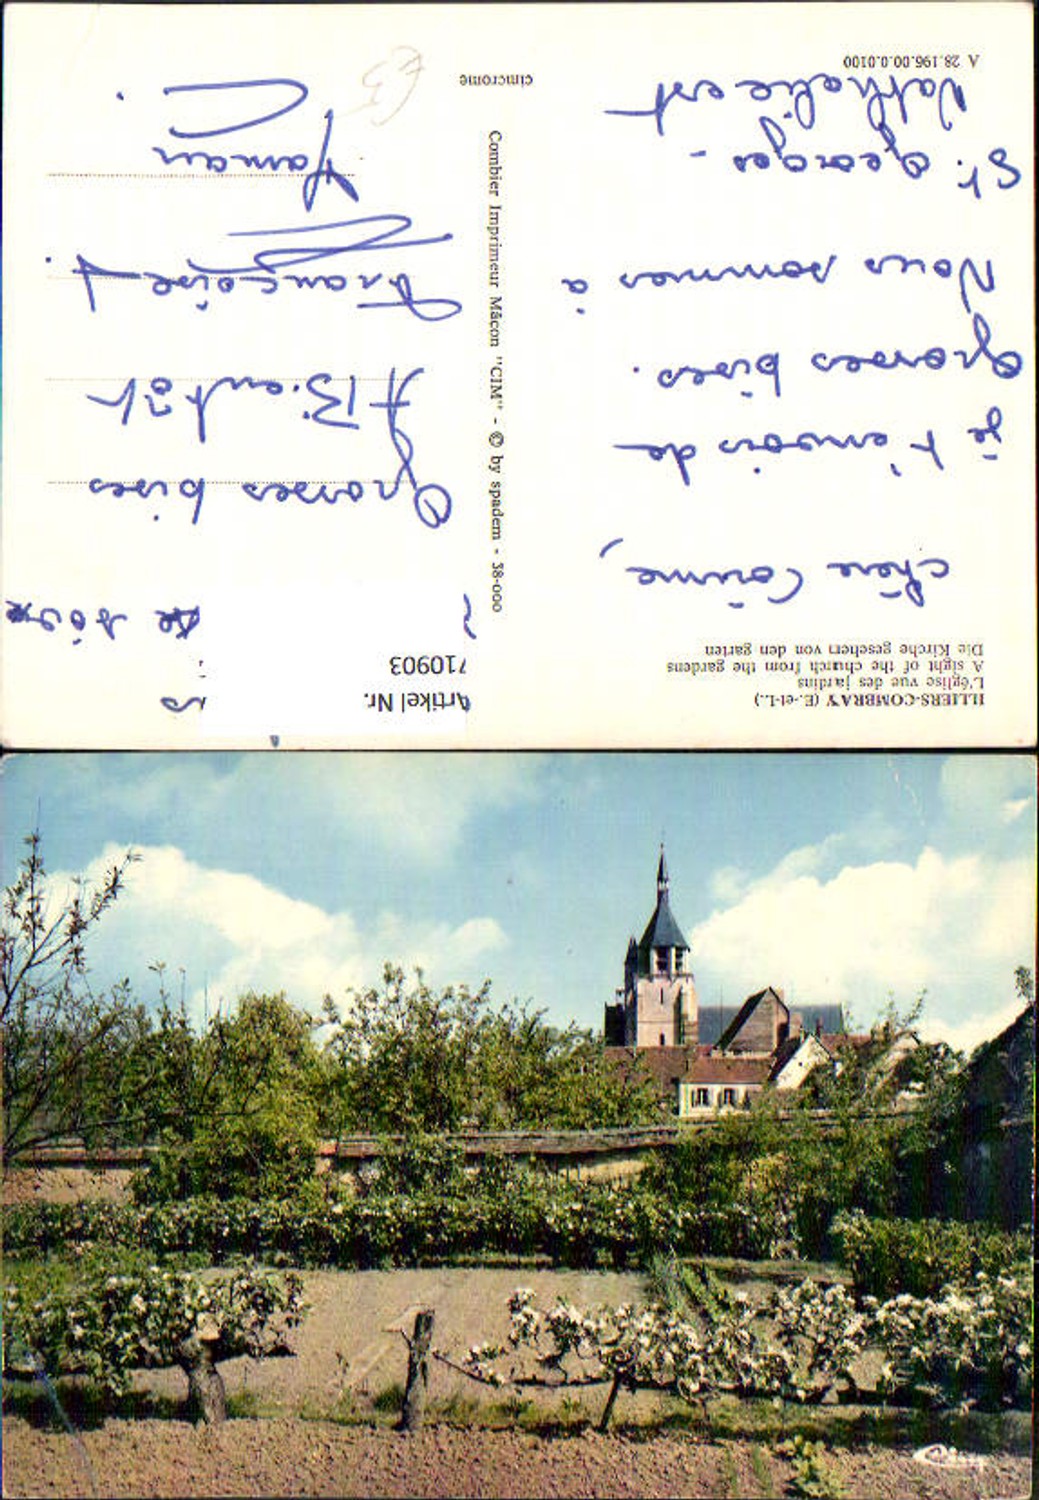 ILLIERS-COMBRAY (E.-et-L.)
L'église vue des jardins
A sight of the church from the gardens
Die Kirche gesehen von den garten
Chère Corinne,
je t'envois de
Grosses bises.
Nous sommes à
St. Georges -
Nathalie est
A 28.196.00.0.0100
Combier Imprimeur Mâcon "CIM" - © by spadem - 38-000
cimcrome
Artikel Nr.
710903
Grosses bises
A Bientôt
Françoise
Maman
£3
Cim